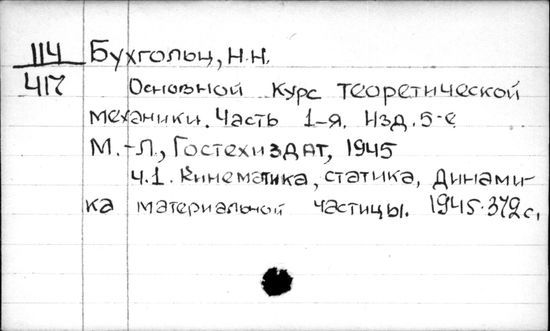 114 Бухгольц, Н.Н.
417 Основной курс теоретической
механики. Часть 1-я. Изд. 5-е
М.-Л., Гостехиздат, 1945
ч.1. Кинематика, статика, динами-
ка материальной частицы. 1945. 372 с.